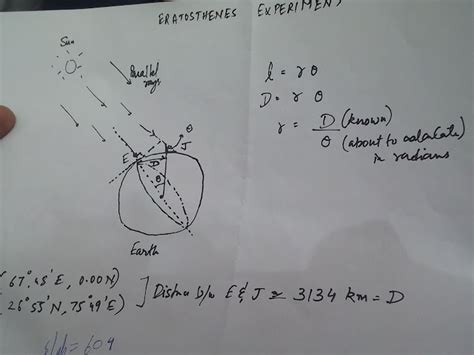 ERATOSTHENES EXPERIMENT
Sun
Parallel rays
l = r θ
D = r θ
r = D (known)
θ (about to calculate in radians
θ
E
J
D
θ
Earth
67° 45' E, 0.00 N)
26° 55' N, 75° 49' E)
] Distance b/w E & J ≃ 3134 km = D
= 604